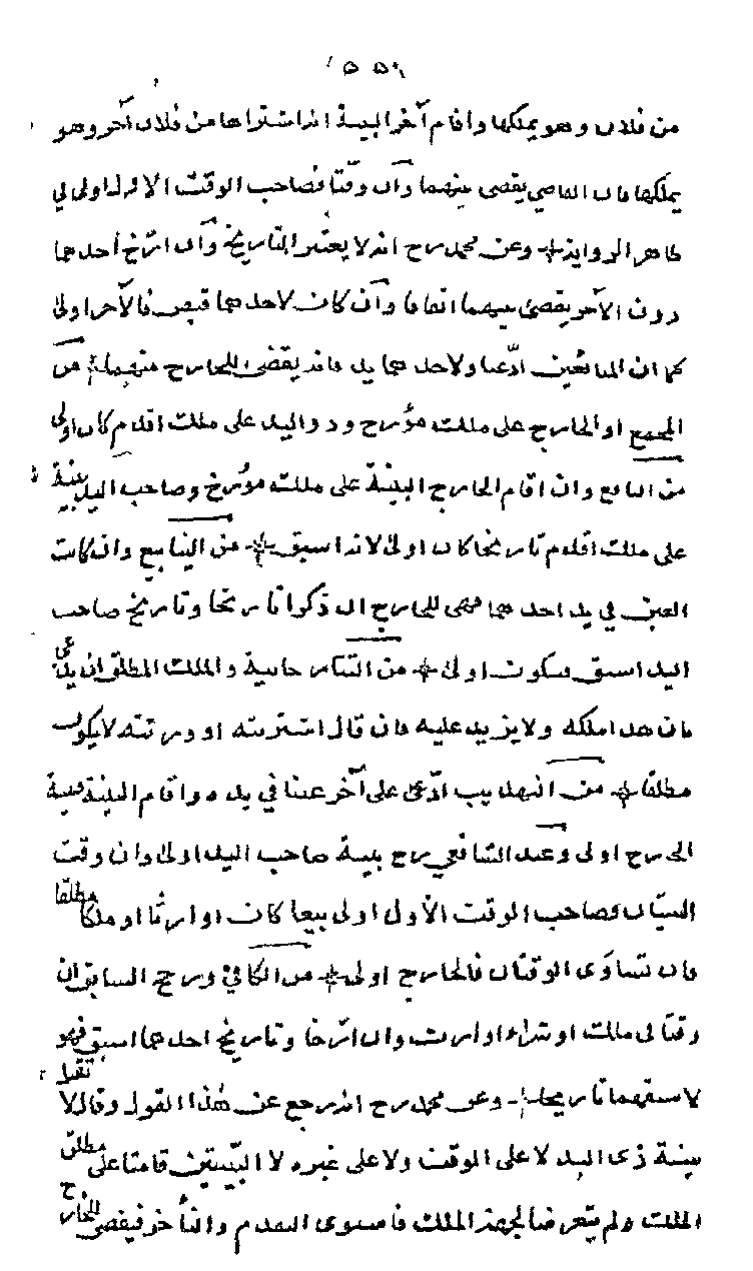 من فلان وهو يملكها واقام آخر البينة انه اشتراها من فلان آخر وهو
يملكها فان القاضي يقضي بينهما وان وقتا فصاحب الوقت الاول اولى في
ظاهر الرواية وعن محمد رح انه لا يعتبر التاريخ وان ارّخ أحدهما
دون الآخر يقضى بينهما اتفاقا وان كان لاحدهما قبض فالآخر اولى
كما ان البائعين ادّعيا ولاحدهما يد فانه يقضى للخارج منهما من
المجمع او الخارج على ملك مؤرخ وذو اليد على ملك اقدم كان اولى
من النافع وان اقام الخارج البينة على ملك مؤرخ وصاحب اليد بينة
على ملك اقدم تاريخا كان اولى لانه اسبق من الينابيع وان كانت
العين في يد احدهما فهي للخارج الا اذا ذكرا تاريخا وتاريخ صاحب
اليد اسبق فيكون اولى من التتارخانية والملك المطلق ان يدّعي
بان هذا ملكه ولا يزيد عليه فان قال اشتريته او ورثته لا يكون
مطلقا من التهذيب ادّعى على آخر عينا في يده واقام البينة فبينة
الخارج اولى وعند الشافعي رح بينة صاحب اليد اولى وان وقت
البيّنان فصاحب الوقت الأول اولى بيعا كان او ارثا او ملكا مطلقا
فان تساوى الوقتان فالخارج اولى من الكافي ورجح السابق ان
وقتا في ملك او شراء او ارث وان ارّخا وتاريخ احدهما اسبق فهو
لاسبقهما تاريخا وعن محمد رح انه رجع عن هذا القول وقال لا تقبل
بينة ذي اليد لا على الوقت ولا على غيره لان البيّنتين قامتا على مطلق
الملك ولم يتعرضا لجهة الملك فاستوى التقدم والتأخر فيقضى للخارج